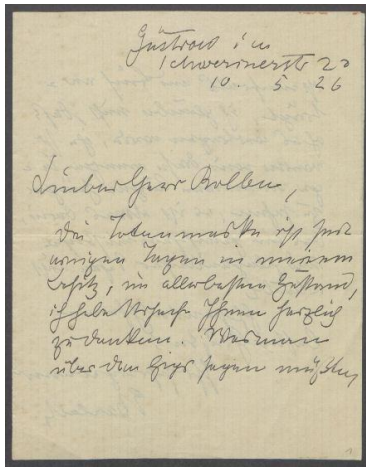 Güstrow i/m
Schwerinerstr 22
10. 5 26
Lieber Herr Rolben,
die Totenmaske ist seit
einigen Tagen in meinem
Besitz, im allerbesten Zustand,
ich habe Ursache Ihnen herzlich
zu danken. Was man
über den Gips sagen müßte,